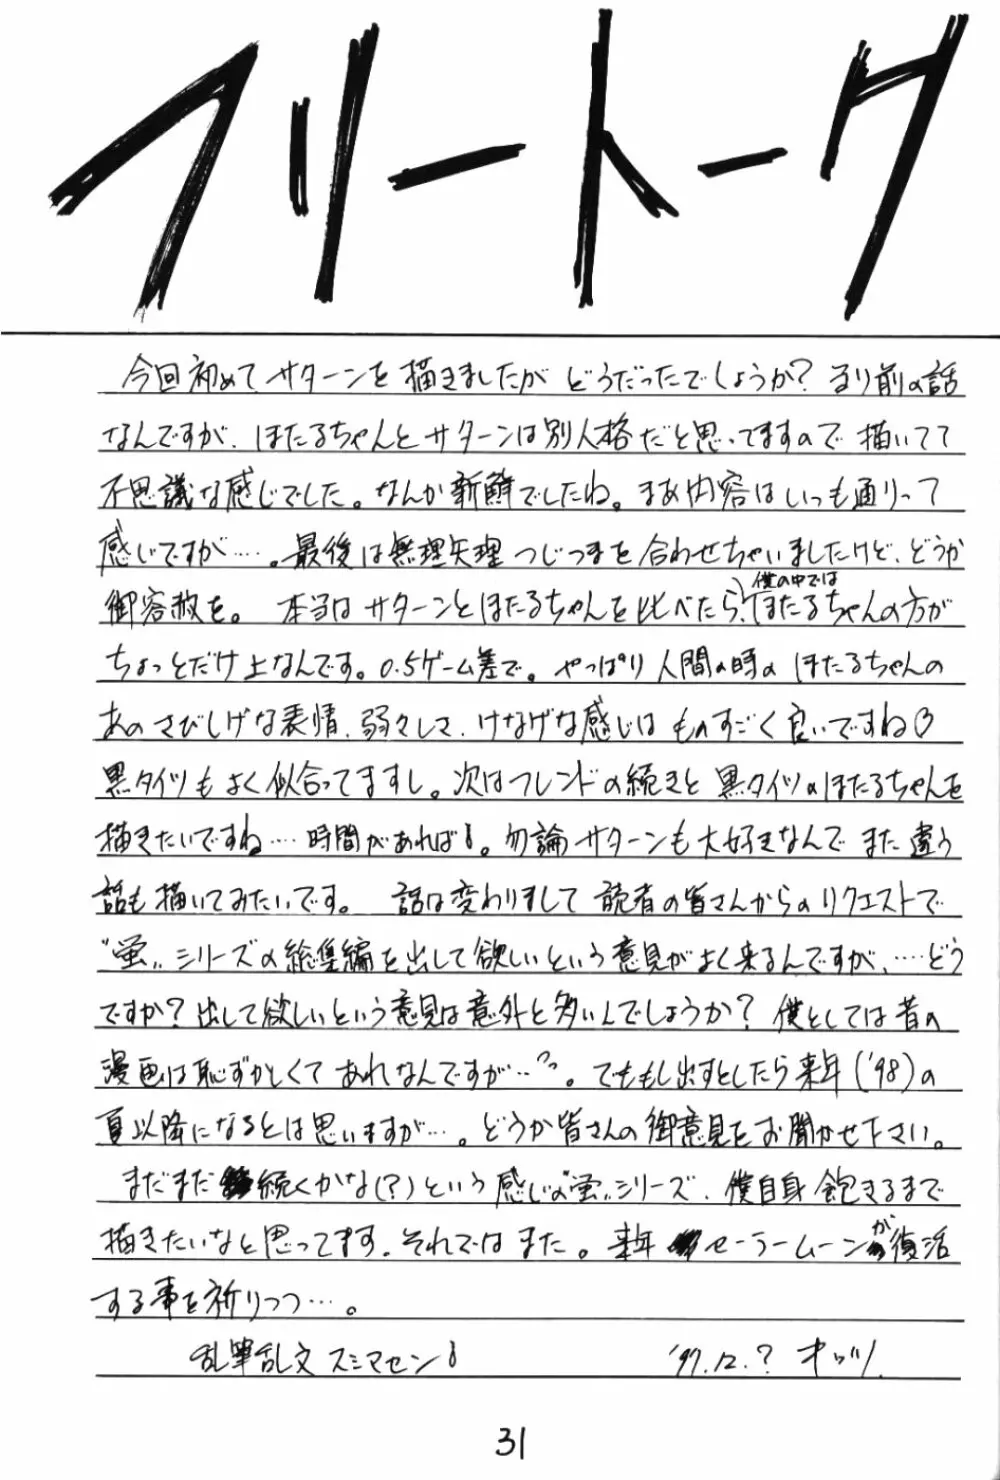 フリートーク
今回初めてサターンを描きましたがどうだったでしょうか？ るり前の話
なんですが、ほたるちゃんとサターンは別人格だと思ってますので描いてて
不思議な感じでした。なんか新鮮でしたね。まあ内容はいつも通りって
感じですが‥‥。最後は無理矢理つじつまを合わせちゃいましたけど、どうか
御容赦を。 本当はサターンとほたるちゃんを比べたら、僕の中ではほたるちゃんの方が
ちょっとだけ上なんです。0.5ゲーム差で。やっぱり人間の時のほたるちゃんの
あのさびしげな表情、弱々しさ、けなげな感じはものすごく良いですね♡
黒タイツもよく似合ってますし。次はフレンドの続きと黒タイツのほたるちゃんを
描きたいですね‥‥時間があれば！。勿論サターンも大好きなんでまた違う
話も描いてみたいです。 話は変わりまして読者の皆さんからのリクエストで
“蛍〟シリーズの総集編を出して欲しいという意見がよく来るんですが、‥‥どう
ですか？出して欲しいという意見は意外と多いんでしょうか？ 僕としては昔の
漫画は恥ずかしくてあれなんですが‥‥。でももし出すとしたら来年（'98）の
夏以降になるとは思いますが‥‥。どうか皆さんの御意見をお聞かせ下さい。
まだまだ続くかな（？）という感じの“蛍〟シリーズ、僕自身飽きるまで
描きたいなと思ってます。それではまた。来年セーラームーンが復活
する事を祈りつつ‥‥。
乱筆乱文スミマセン！ '97.12.？ オッツ.
31